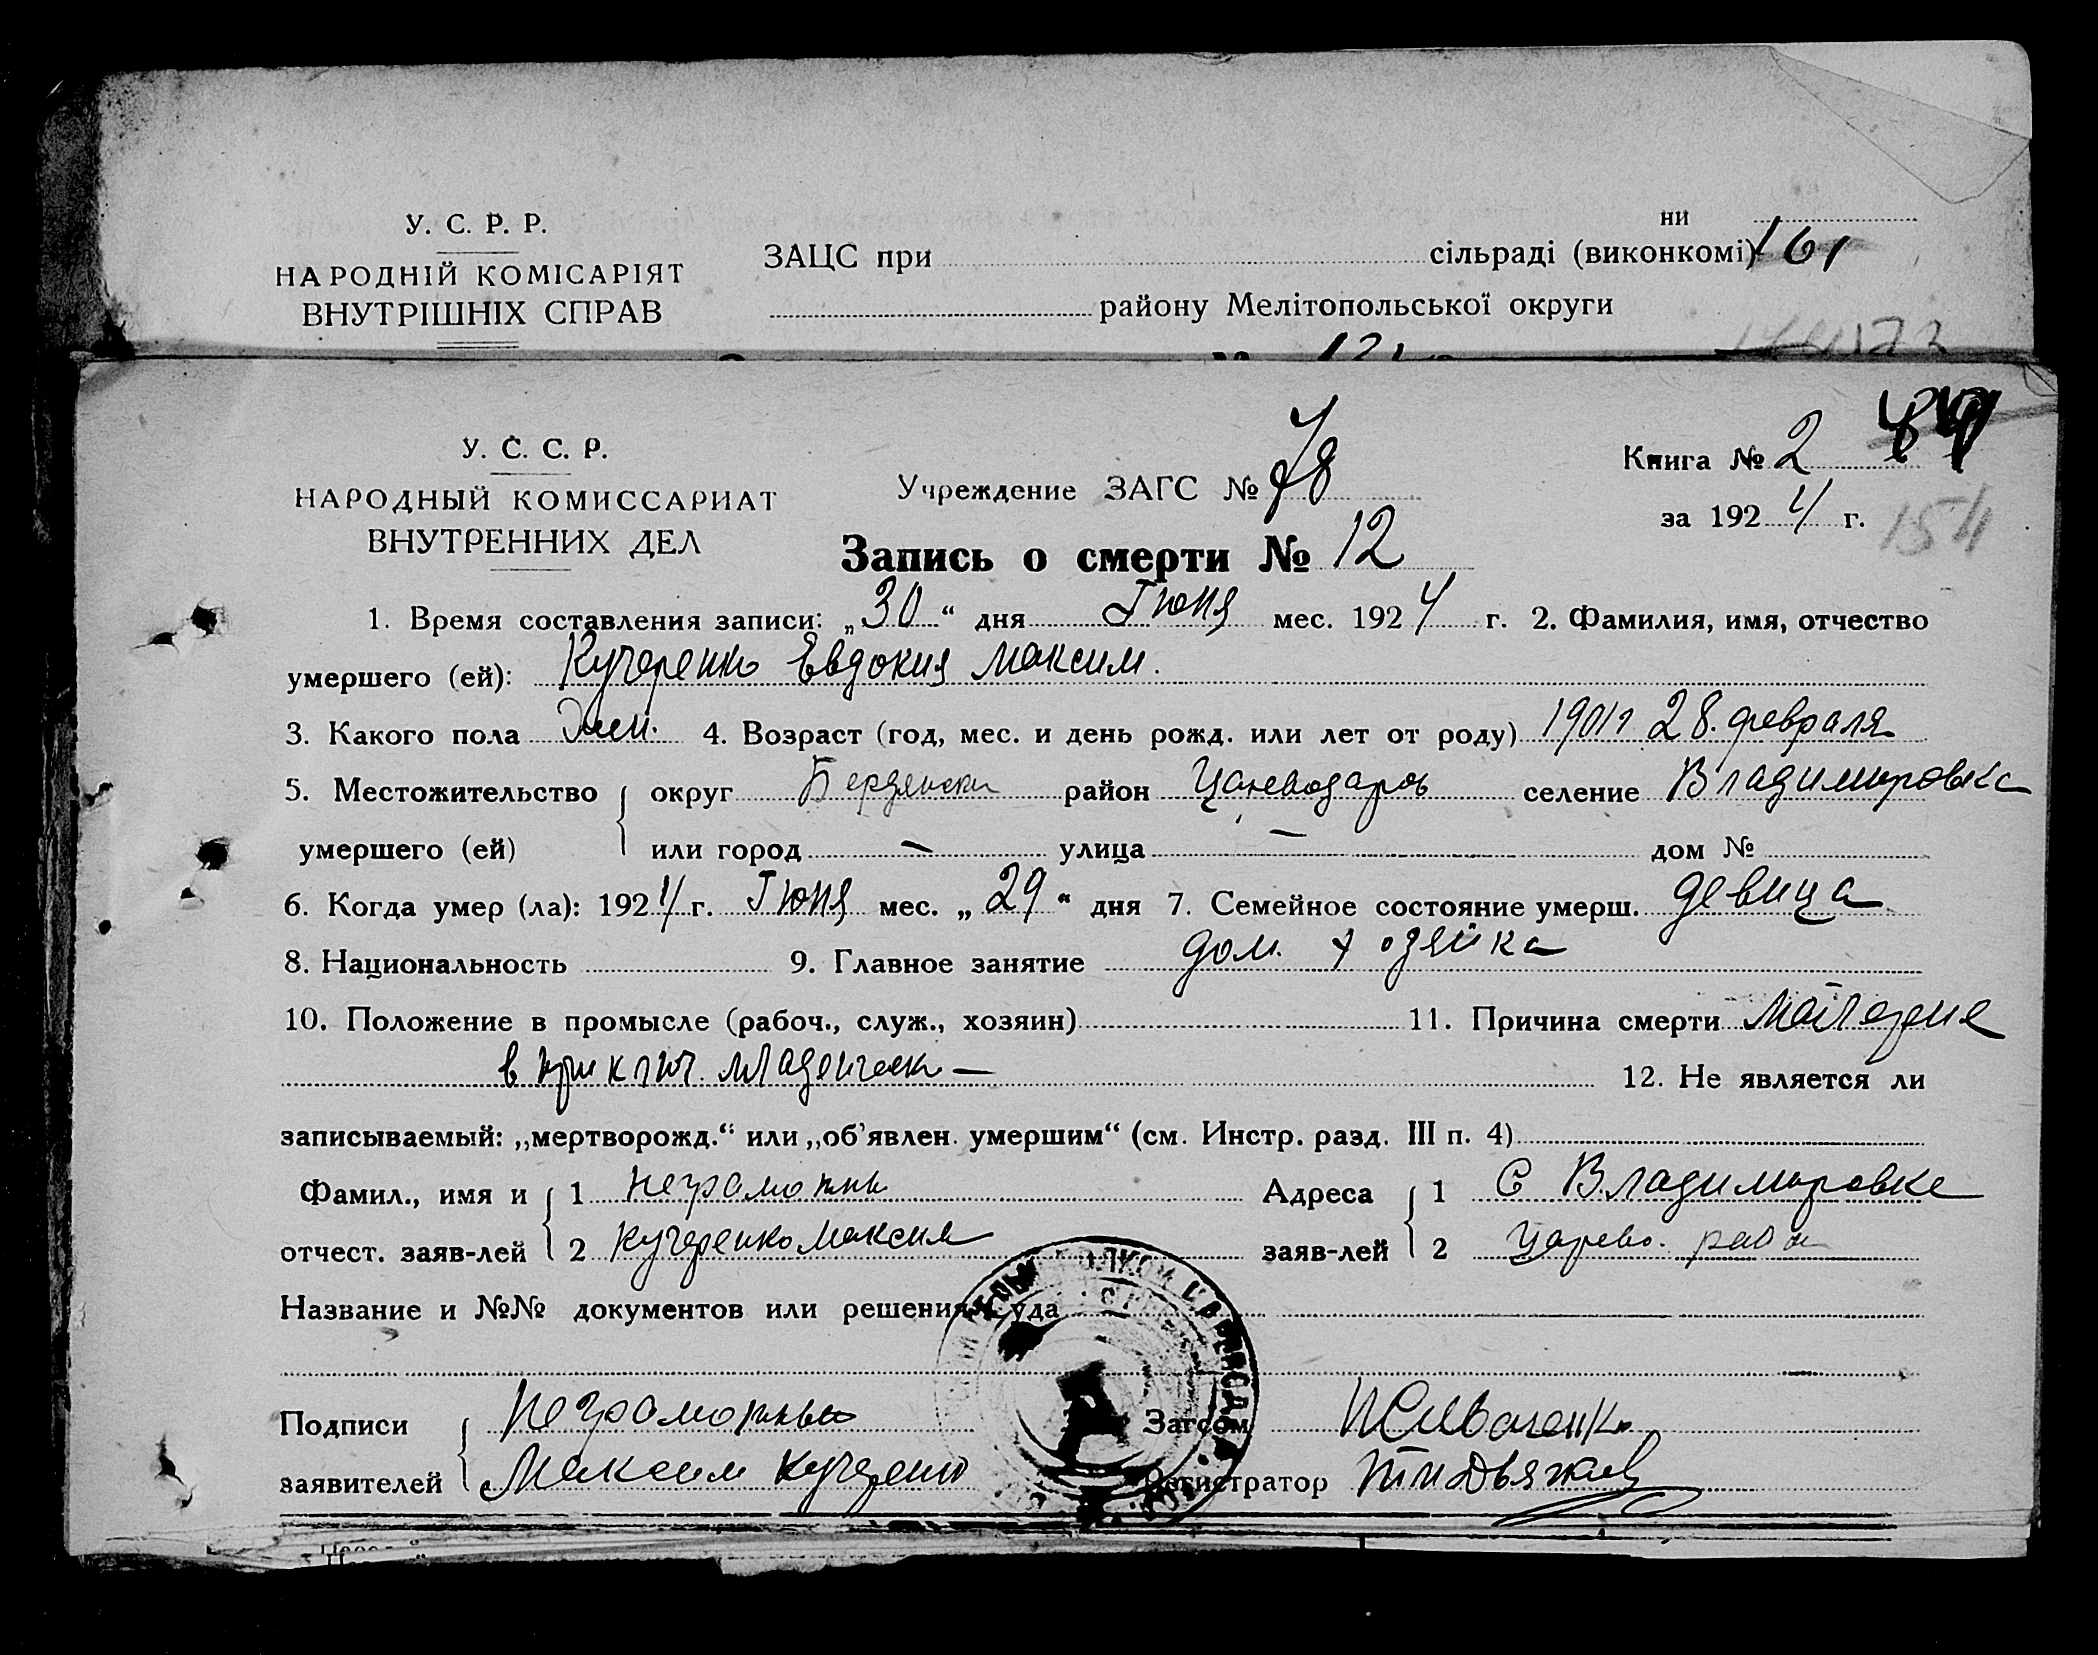 У. С. Р. Р.
НАРОДНІЙ КОМІСАРІЯТ
ВНУТРІШНІХ СПРАВ
ни
ЗАЦС при сільраді (виконкомі) 161
району Мелітопольської округи
У. С. С. Р.
НАРОДНЫЙ КОМИССАРИАТ
ВНУТРЕННИХ ДЕЛ
Учреждение ЗАГС № 78
Книга № 2
за 1924 г.
154
Запись о смерти № 12
1. Время составления записи: „30“ дня Іюня мес. 1924 г. 2. Фамилия, имя, отчество
умершего (ей): Кучеренко Евдокия Максим.
3. Какого пола Жен. 4. Возраст (год, мес. и день рожд. или лет от роду) 28. февраля
5. Местожительство округ Бердянски район Цареводаров селение Владимировка
умершего (ей) или город — улица — дом №
6. Когда умер (ла): 1924 г. Іюня мес. „29“ дня 7. Семейное состояние умерш. девица
8. Национальность 9. Главное занятие дом. хозяйка
10. Положение в промысле (рабоч., служ., хозяин) 11. Причина смерти
в 12. Не является ли
записываемый: „мертворожд.“ или „об’явлен. умершим“ (см. Инстр. разд. III п. 4)
Фамил., имя и 1 Неграмотны Адреса 1 С Владимировке
отчест. заяв-лей 2 Кучеренко Максим заяв-лей 2 Царево. район
Название и №№ документов или решения суда
Подписи Неграмотный Загсом
заявителей Максим Кучеренко Регистратор